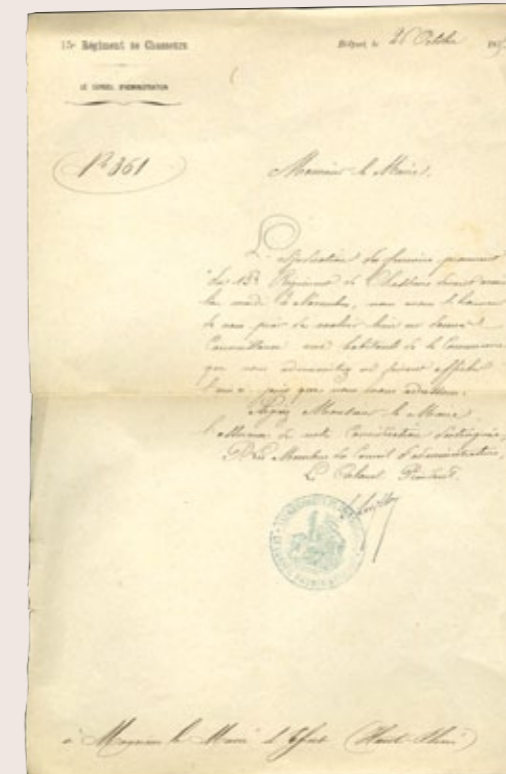 15e Régiment de Chasseurs
Belfort, le 26 Octobre
LE CONSEIL D'ADMINISTRATION
No 361
Monsieur le Maire,
L'adjudication des fumiers provenant
du 15e Régiment de Chasseurs devant avoir
lieu mardi Novembre, nous avons l'honneur
de vous prier de vouloir bien en donner
Connaissance aux habitants de la Commune
que vous administrez en faisant afficher
que nous vous adressons.
Agréez Monsieur le Maire
l'assurance de notre Considération distinguée,
Les Membres du Conseil d'administration,
Le Colonel Président.
à Monsieur le Maire d' (Haut Rhin)